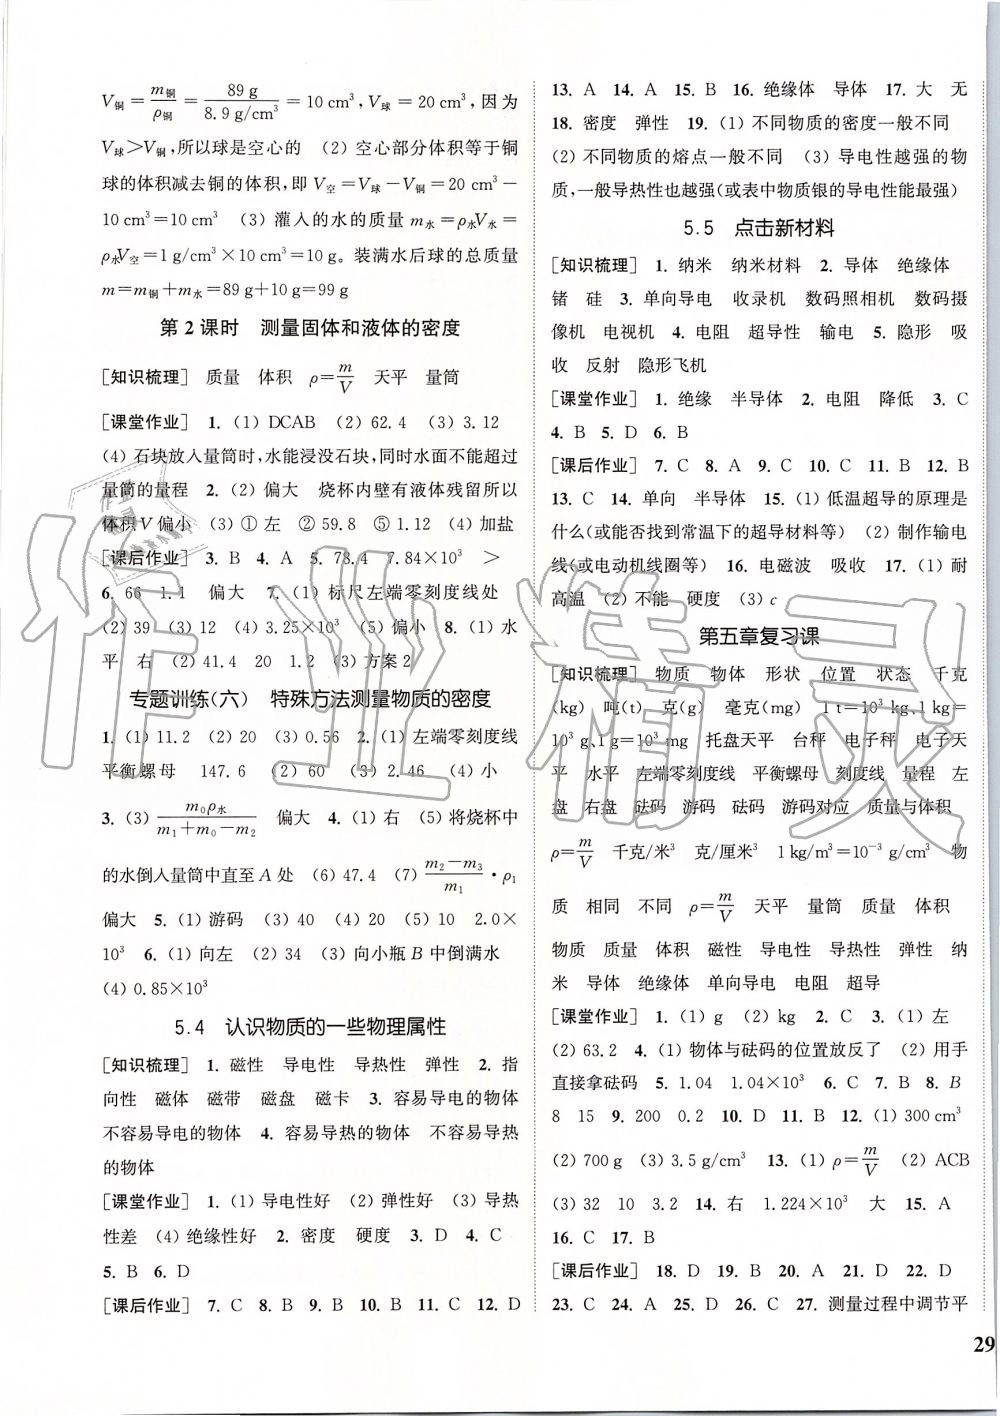 V铜＝m铜/ρ铜＝89 g/8.9 g/cm³＝10 cm³，V球＝20 cm³，因为
V球＞V铜，所以球是空心的 （2）空心部分体积等于铜
球的体积减去铜的体积，即 V空＝V球－V铜＝20 cm³－
10 cm³＝10 cm³ （3）灌入的水的质量 m水＝ρ水V水＝
ρ水V空＝1 g/cm³×10 cm³＝10 g。装满水后球的总质量
m＝m铜＋m水＝89 g＋10 g＝99 g
第 2 课时 测量固体和液体的密度
［知识梳理］ 质量 体积 ρ＝m/V 天平 量筒
［课堂作业］ 1.（1）DCAB （2）62.4 （3）3.12
（4）石块放入量筒时，水能浸没石块，同时水面不能超过
量筒的量程 2.（2）偏大 烧杯内壁有液体残留所以
体积 V 偏小 （3）① 左 ② 59.8 ⑤ 1.12 （4）加盐
［课后作业］ 3. B 4. A 5. 78.4 7.84×10³ ＞
6. 66 1.1 偏大 7.（1）标尺左端零刻度线处
（2）39 （3）12 （4）3.25×10³ （5）偏小 8.（1）水
平 右 （2）41.4 20 1.2 （3）方案 2
专题训练（六） 特殊方法测量物质的密度
1.（1）11.2 （2）20 （3）0.56 2.（1）左端零刻度线
平衡螺母 147.6 （2）60 （3）2.46 （4）小
3.（3）m₀ρ水/m₁＋m₀－m₂ 偏大 4.（1）右 （5）将烧杯中
的水倒入量筒中直至 A 处 （6）47.4 （7）m₂－m₃/m₁·ρ₁
偏大 5.（1）游码 （3）40 （4）20 （5）10 2.0×
10³ 6.（1）向左 （2）34 （3）向小瓶 B 中倒满水
（4）0.85×10³
5.4 认识物质的一些物理属性
［知识梳理］ 1. 磁性 导电性 导热性 弹性 2. 指
向性 磁体 磁带 磁盘 磁卡 3. 容易导电的物体
不容易导电的物体 4. 容易导热的物体 不容易导热
的物体
［课堂作业］ 1.（1）导电性好 （2）弹性好 （3）导热
性差 （4）绝缘性好 2. 密度 硬度 3. D 4. C
5. B 6. D
［课后作业］ 7. C 8. B 9. B 10. B 11. C 12. D
13. A 14. A 15. B 16. 绝缘体 导体 17. 大 无
18. 密度 弹性 19.（1）不同物质的密度一般不同
（2）不同物质的熔点一般不同 （3）导电性越强的物
质，一般导热性也越强（或表中物质银的导电性能最强）
5.5 点击新材料
［知识梳理］ 1. 纳米 纳米材料 2. 导体 绝缘体
锗 硅 3. 单向导电 收录机 数码照相机 数码摄
像机 电视机 4. 电阻 超导性 输电 5. 隐形 吸
收 反射 隐形飞机
［课堂作业］ 1. 绝缘 半导体 2. 电阻 降低 3. C
4. B 5. D 6. B
［课后作业］ 7. C 8. A 9. C 10. C 11. B 12. B
13. C 14. 单向 半导体 15.（1）低温超导的原理是
什么（或能否找到常温下的超导材料等） （2）制作输电
线（或电动机线圈等） 16. 电磁波 吸收 17.（1）耐
高温 （2）不能 硬度 （3）c
第五章复习课
［知识梳理］ 物质 物体 形状 位置 状态 千克
（kg） 吨（t） 克（g） 毫克（mg） 1 t＝10³ kg、1 kg＝
10³ g、1 g＝10³ mg 托盘天平 台秤 电子秤 电子天
平 水平 左端零刻度线 平衡螺母 刻度线 量程 左
盘 右盘 砝码 游码 砝码 游码对应 质量与体积
ρ＝m/V 千克/米³ 克/厘米³ 1 kg/m³＝10⁻³ g/cm³ 物
质 相同 不同 ρ＝m/V 天平 量筒 质量 体积
物质 质量 体积 磁性 导电性 导热性 弹性 纳
米 导体 绝缘体 单向导电 电阻 超导
［课堂作业］ 1.（1）g （2）kg 2. C 3.（1）左
（2）63.2 4.（1）物体与砝码的位置放反了 （2）用手
直接拿砝码 5. 1.04 1.04×10³ 6. C 7. B 8. B
8 15 9. 200 0.2 10. D 11. B 12.（1）300 cm³
（2）700 g （3）3.5 g/cm³ 13.（1）ρ＝m/V （2）ACB
（3）32 10 3.2 14. 右 1.224×10³ 大 15. A
16. C 17. B
［课后作业］ 18. D 19. B 20. A 21. D 22. D
23. C 24. A 25. D 26. C 27. 测量过程中调节平
29
作业精灵